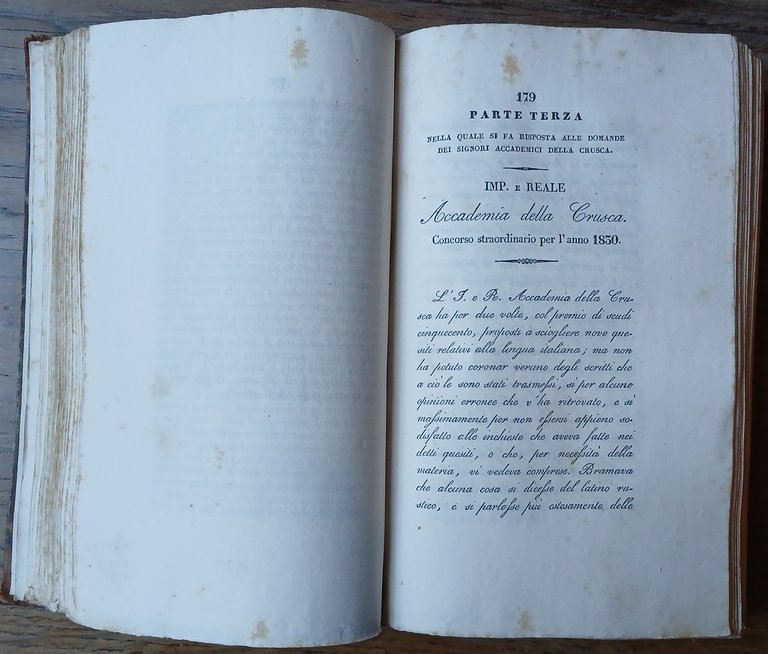 179
PARTE TERZA
NELLA QUALE SI FA RISPOSTA ALLE DOMANDE
DEI SIGNORI ACCADEMICI DELLA CRUSCA.
IMP. E REALE
Accademia della Crusca.
Concorso straordinario per l'anno 1830.
L' I. e R. Accademia della Cru-
sca ha per due volte, col premio di scudi
cinquecento, proposti a sciogliere nove que-
siti relativi alla lingua italiana; ma non
ha potuto coronar veruno degli scritti che
a ciò le sono stati trasmeſsi, sì per alcune
opinioni erronee che v'ha ritrovato, e sì
maſsimamente per non eſsersi appieno so-
disfatto alle inchieste che aveva fatte nei
detti quesiti, o che, per neceſsità della
materia, vi vedeva comprese. Bramava
che alcuna cosa si diceſse del latino ru-
stico, e si parlaſse più estesamente delle